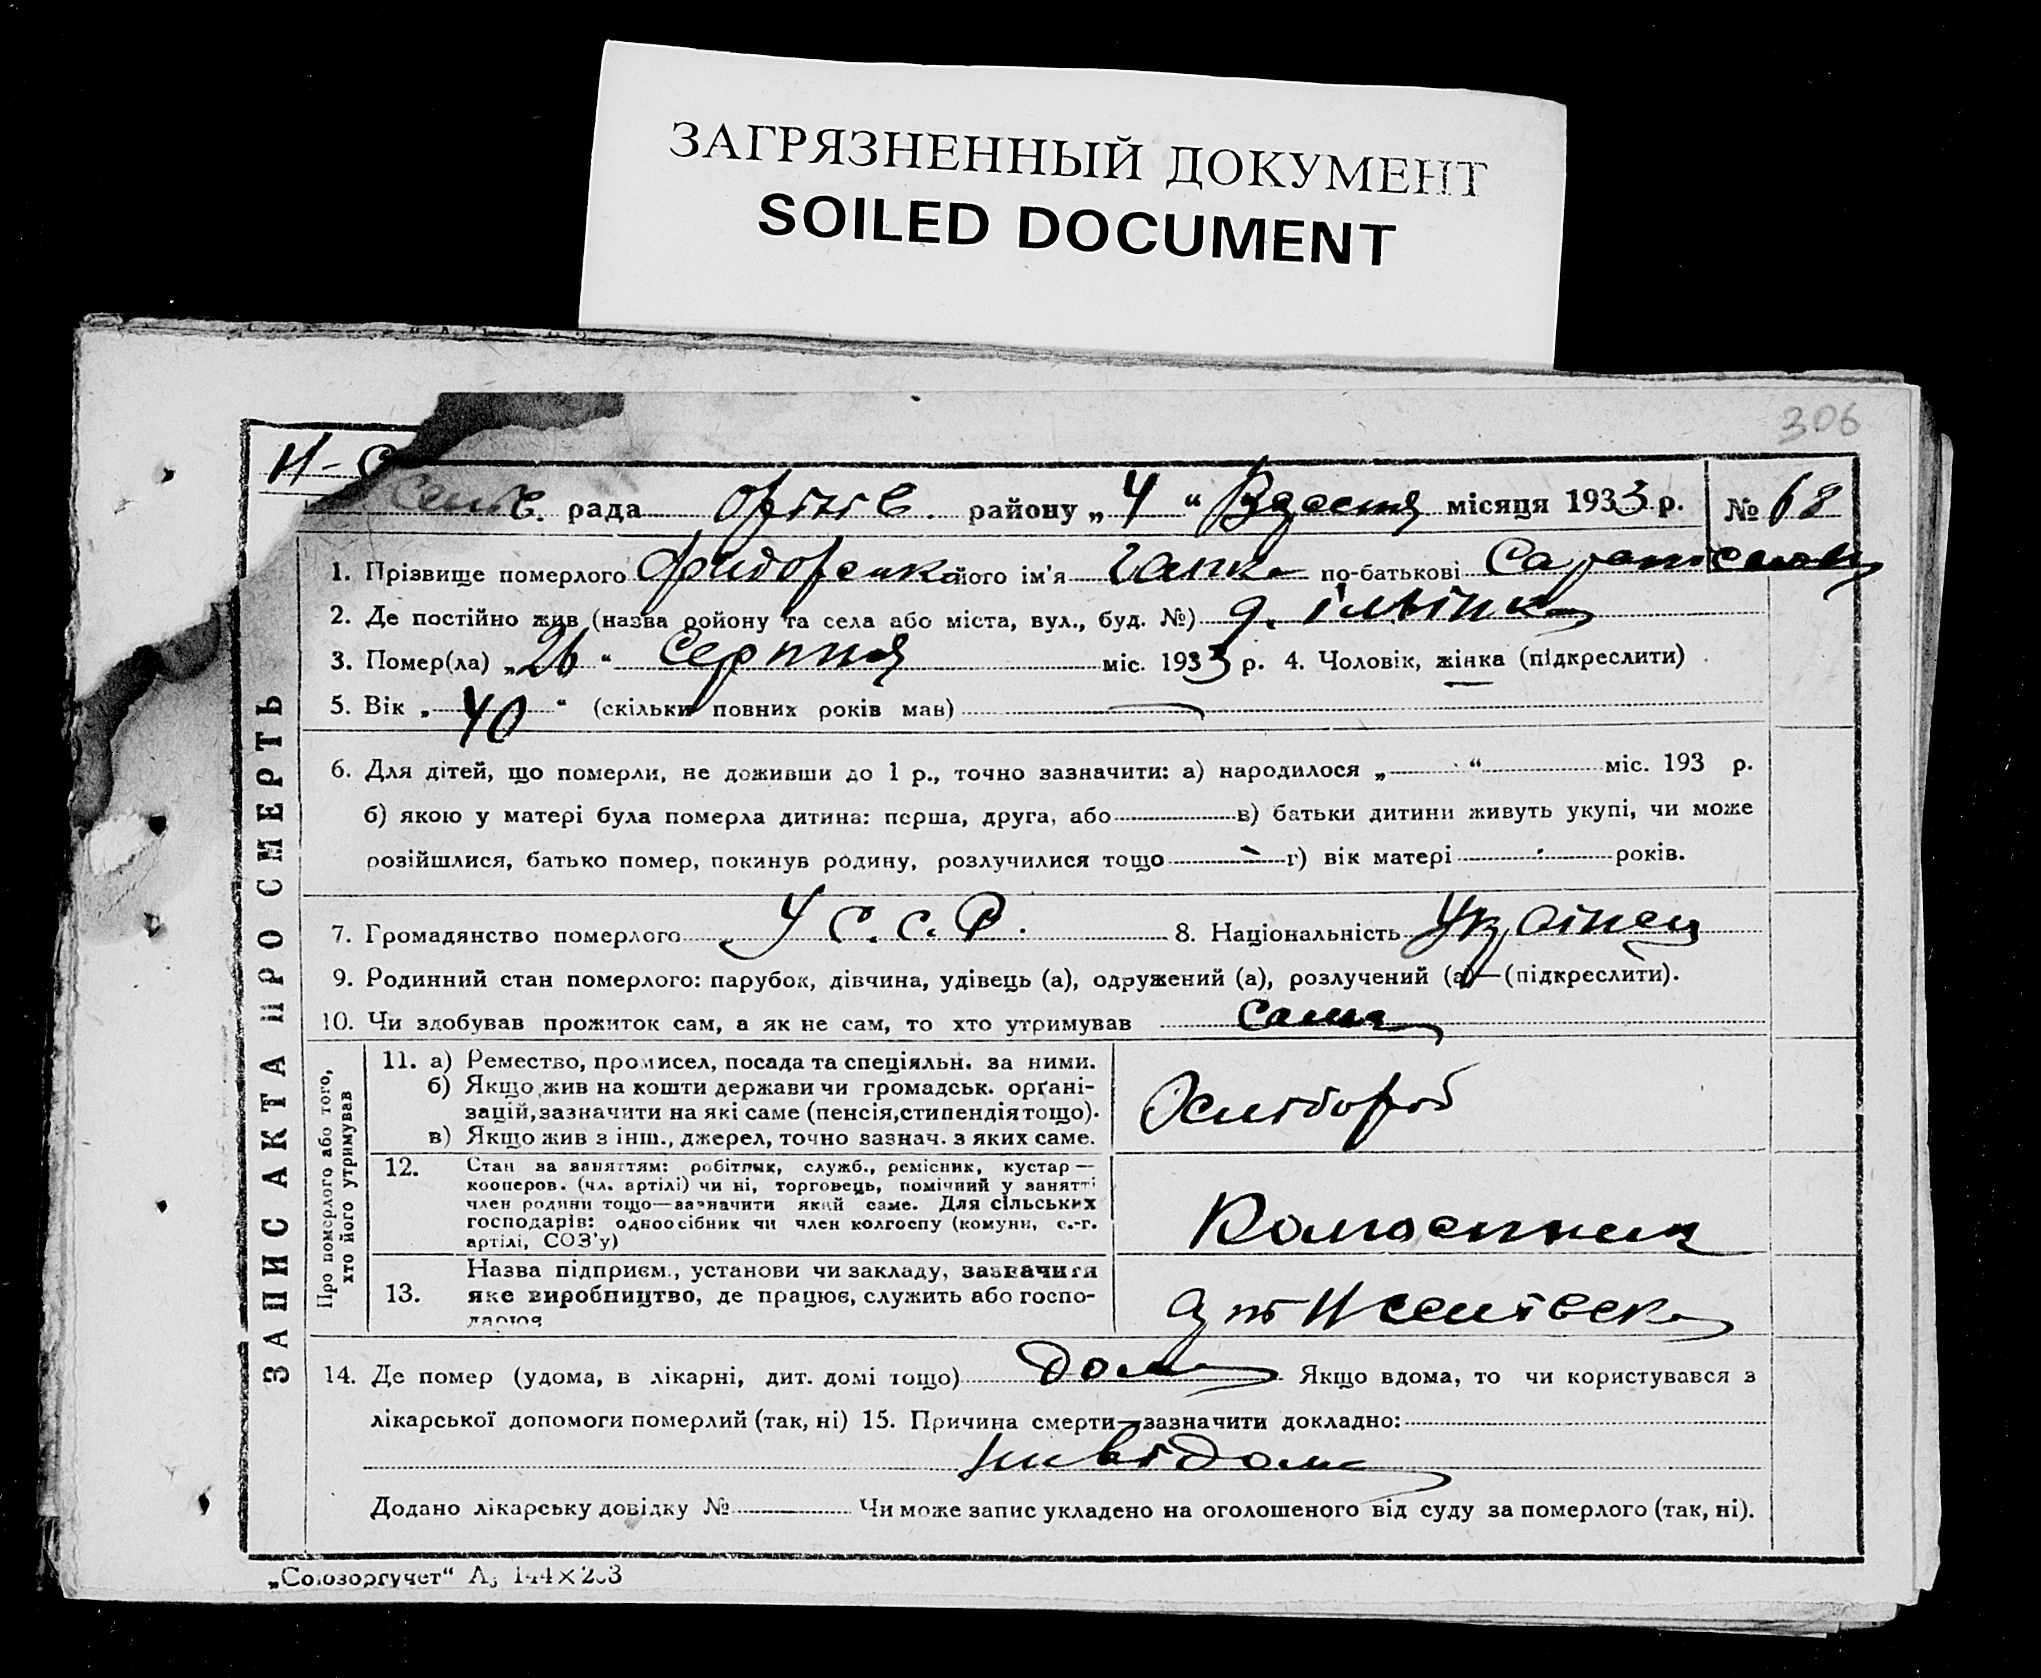 ЗАГРЯЗНЕННЫЙ ДОКУМЕНТ
SOILED DOCUMENT
306
Н-С
рада району „4“ місяця 1933 р. № 68
1. Прізвище померлого його ім'я по-батькові
2. Де постійно жив (назва район​у та села або міста, вул., буд. №)
3. Помер(ла) „26“ Серпня міс. 1933 р. 4. Чоловік, жінка (підкреслити)
5. Вік „40“ (скільки повних років мав)
6. Для дітей, що померли, не доживши до 1 р., точно зазначити: а) народилося „ “ міс. 193 р.
б) якою у матері була померла дитина: перша, друга, або в) батьки дитини живуть укупі, чи може
розійшлися, батько помер, покинув родину, розлучилися тощо г) вік матері років.
7. Громадянство померлого У С. С. Р. 8. Національність Українец
9. Родинний стан померлого: парубок, дівчина, удівець (а), одружений (а), розлучений (а)—(підкреслити).
10. Чи здобував прожиток сам, а як не сам, то хто утримував Сама
ЗАПИС АКТА ПРО СМЕРТЬ
Про померлого або того,
хто його утримував
11. а) Ремество, промисел, посада та спеціяльн. за ними.
б) Якщо жив на кошти держави чи громадськ. орґані-
зацій, зазначити на які саме (пенсія, стипендія тощо).
в) Якщо жив з інш., джерел, точно зазнач. з яких саме.
Хлібороб
12. Стан за заняттям: робітник, служб., ремісник, кустар —
кооперов. (чл. артілі) чи ні, торговець, помічний у занятті
член родини тощо—зазначити який саме. Для сільських
господарів: одноосібник чи член колгоспу (комуни, с.-г.
артілі, СОЗ'у)
Колгоспник
13. Назва підприєм., установи чи закладу, зазначити
яке виробництво, де працює, служить або госпо-
дарює
14. Де помер (удома, в лікарні, дит. домі тощо) дома Якщо вдома, то чи користувався з
лікарської допомоги померлий (так, ні) 15. Причина смерти—зазначити докладно:
Додано лікарську довідку № Чи може запис укладено на оголошеного від суду за померлого (так, ні).
„Союзоргучет“